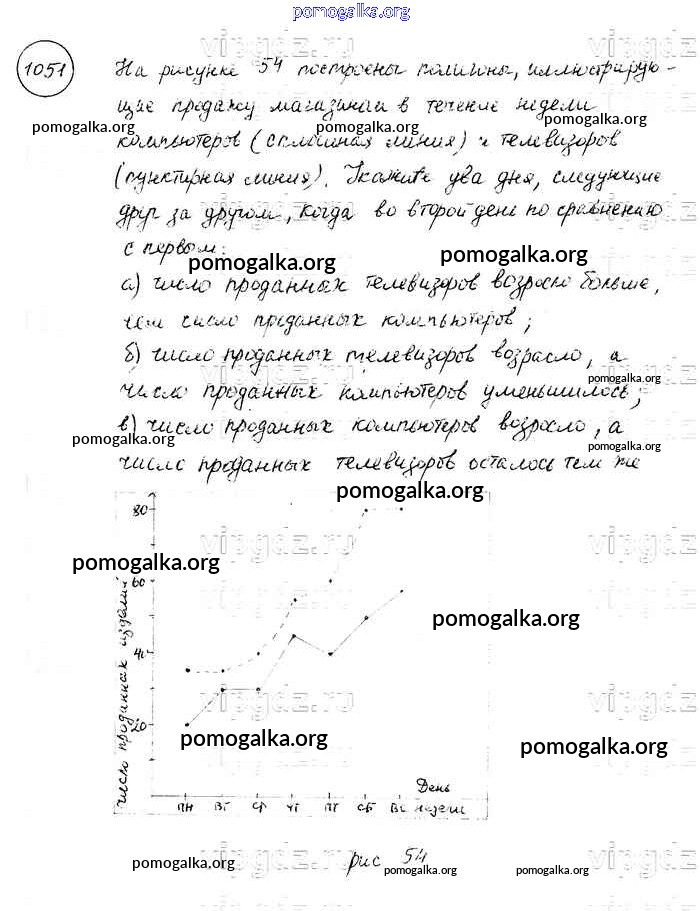 pomogalka.org
vipgdz.ru
1051 На рисунке 54 построены полигоны, иллюстрирую-
щие продажу магазином в течение недели
pomogalka.org pomogalka.org pomogalka.org
компьютеров (сплошная линия) и телевизоров
(пунктирная линия). Укажите два дня, следующие
vipgdz.ru vipgdz.ru
друг за другом, когда во второй день по сравнению
с первом:
pomogalka.org pomogalka.org
а) число проданных телевизоров возросло больше,
чем число проданных компьютеров;
б) число проданных телевизоров возрасло, а
pomogalka.org
число проданных компьютеров уменьшилось;
в) число проданных компьютеров возросло, а
pomogalka.org pomogalka.org
число проданных телевизоров осталось тем же
pomogalka.org
80
vipgdz.ru vipgdz.ru
pomogalka.org
60
pomogalka.org
40
число проданных изделий
vipgdz.ru vipgdz.ru
20
pomogalka.org pomogalka.org
День
пн вт ср чт пт сб вс недели
рис 54
pomogalka.org pomogalka.org pomogalka.org
vipgdz.ru vipgdz.ru